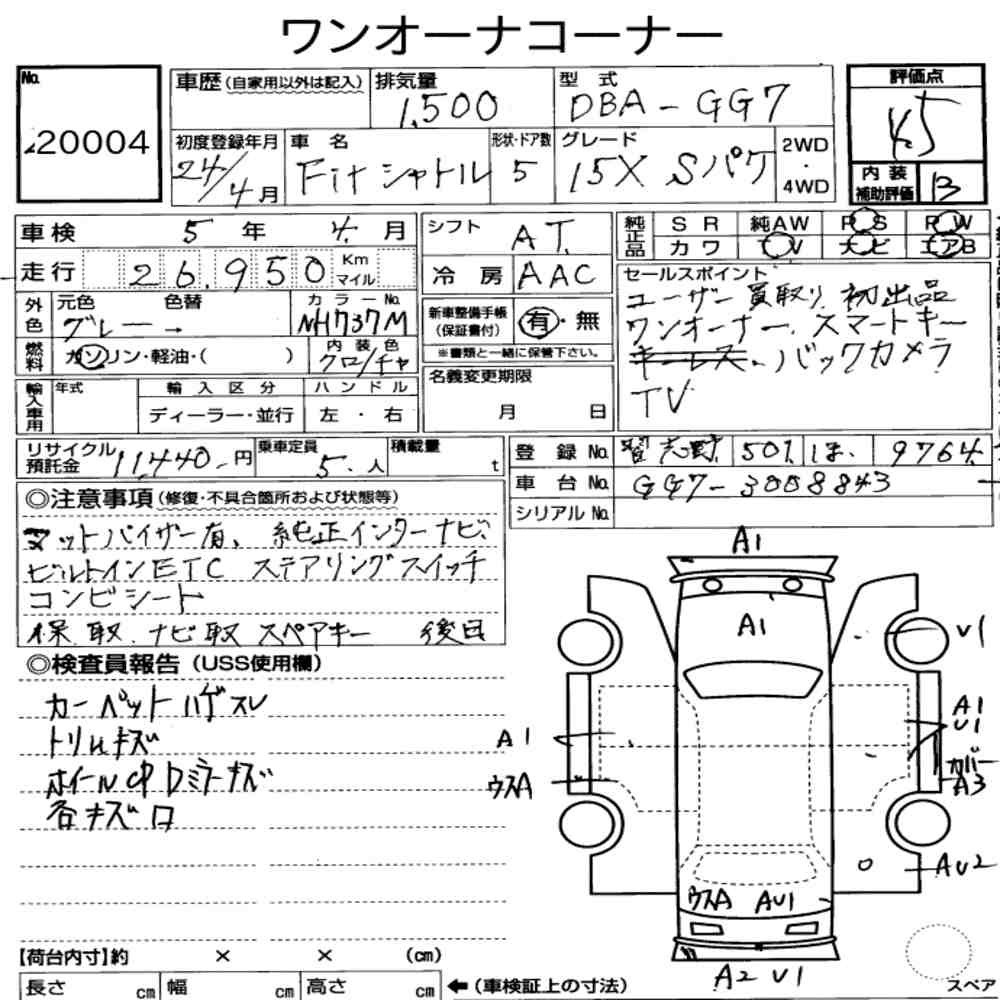 ワンオーナコーナー
No.
20004
車歴(自家用以外は記入)
排気量
1,500
型 式
DBA-GG7
評価点
4.5
初度登録年月
24/4月
車 名
Fitシャトル
形状・ドア数
5
グレード
15X Sパケ
2WD
・
4WD
内 装
補助評価
B
車検 5 年 4 月
シフト AT
純正品
SR 純AW PS PW
カワ TV ナビ エアB
走行 26,950 Km マイル
冷 房 AAC
セールスポイント
ユーザー買取り 初出品
ワンオーナー、スマートキー
キーレス、バックカメラ
TV
外色
元色 色替 カラーNo.
グレー → NH737M
新車整備手帳
(保証書付)
有・無
※書類と一緒に保管下さい。
燃料
ガソリン・軽油・( )
内 装 色
クロ/チャ
名義変更期限
月 日
輸入車用
年式 輸 入 区 分 ハ ン ド ル
ディーラー・並行 左 ・ 右
リサイクル
預託金
11440-円
乗車定員
5.人
積載量
t
登 録 No. 習志野 501 ほ 9764
車 台 No. GG7-3008843
シリアル No.
◎注意事項(修復・不具合箇所および状態等)
マットバイザー有、純正インターナビ、
ビルトインETC ステアリングスイッチ
コンビシート
保、取、ナビ取 スペアキー 後日
◎検査員報告(USS使用欄)
カーペットハゲスレ
トリムキズ
ホイールCP Dミラーキズ
各キズ口
A1
A1
V1
A1
U1
カバー
A3
A1
ウスA
AU2
ウスA AU1
A2 V1
【荷台内寸】約 × × (cm)
長さ cm 幅 cm 高さ cm
←(車検証上の寸法)
スペア